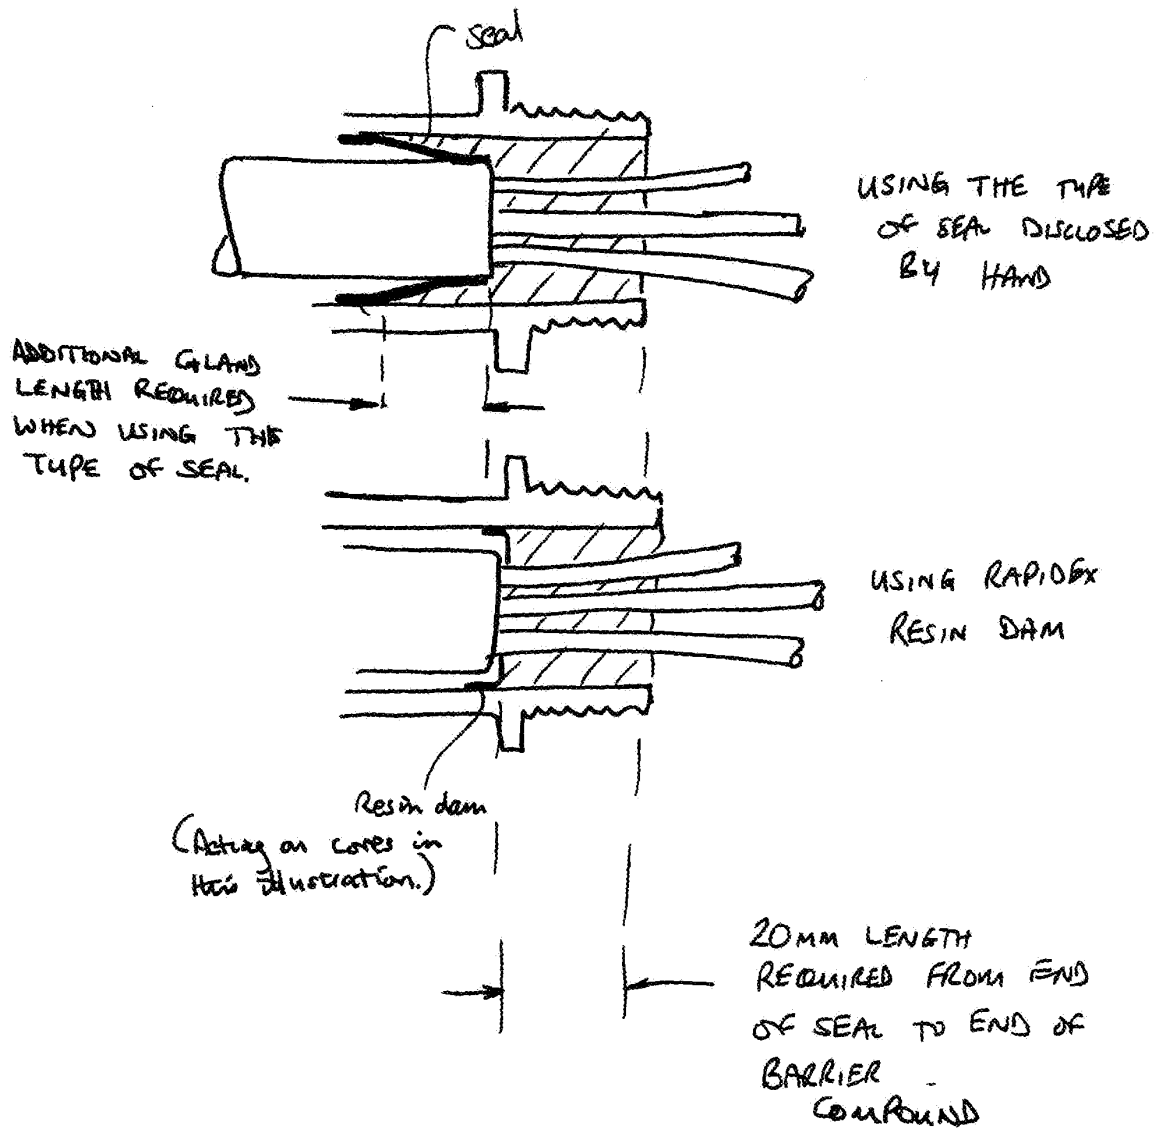 seal
USING THE TYPE
OF SEAL DISCLOSED
BY HAND
ADDITIONAL GLAND
LENGTH REQUIRED
WHEN USING THE
TYPE OF SEAL.
USING RAPIDEX
RESIN DAM
Resin dam
(Acting on cores in
this illustration.)
20MM LENGTH
REQUIRED FROM END
OF SEAL TO END OF
BARRIER
COMPOUND